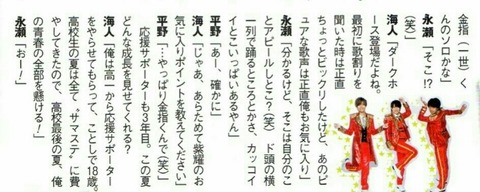 金指(一世)く
んのソロかな」
永瀬「そこ!?
(笑)」
海人「ダークホ
ース登場だよね。
最初に歌割りを
聞いた時は正直
ちょっとビックリしたけど、あのピ
ュアな歌声は正直俺もお気に入り」
永瀬「分かるけど、そこは自分のこ
とアピールしとこ?(笑) ド頭の横
一列で踊るところとかさ、カッコイ
イとこいっぱいあるやん」
平野「あー、確かに」
海人「じゃあ、あらためて紫耀のお
気に入りポイントを教えてください」
平野「…やっぱり金指くんで(笑)」
応援サポーターも3年目。この夏
どんな成長を見せてくれる?
海人「俺は高一から応援サポーター
をやらせてもらって、ことしで18歳。
高校生の夏は全て〝サマステ〟に費
やしてきたので、高校最後の夏、俺
の青春の全部を懸ける!」
永瀬「おー!」